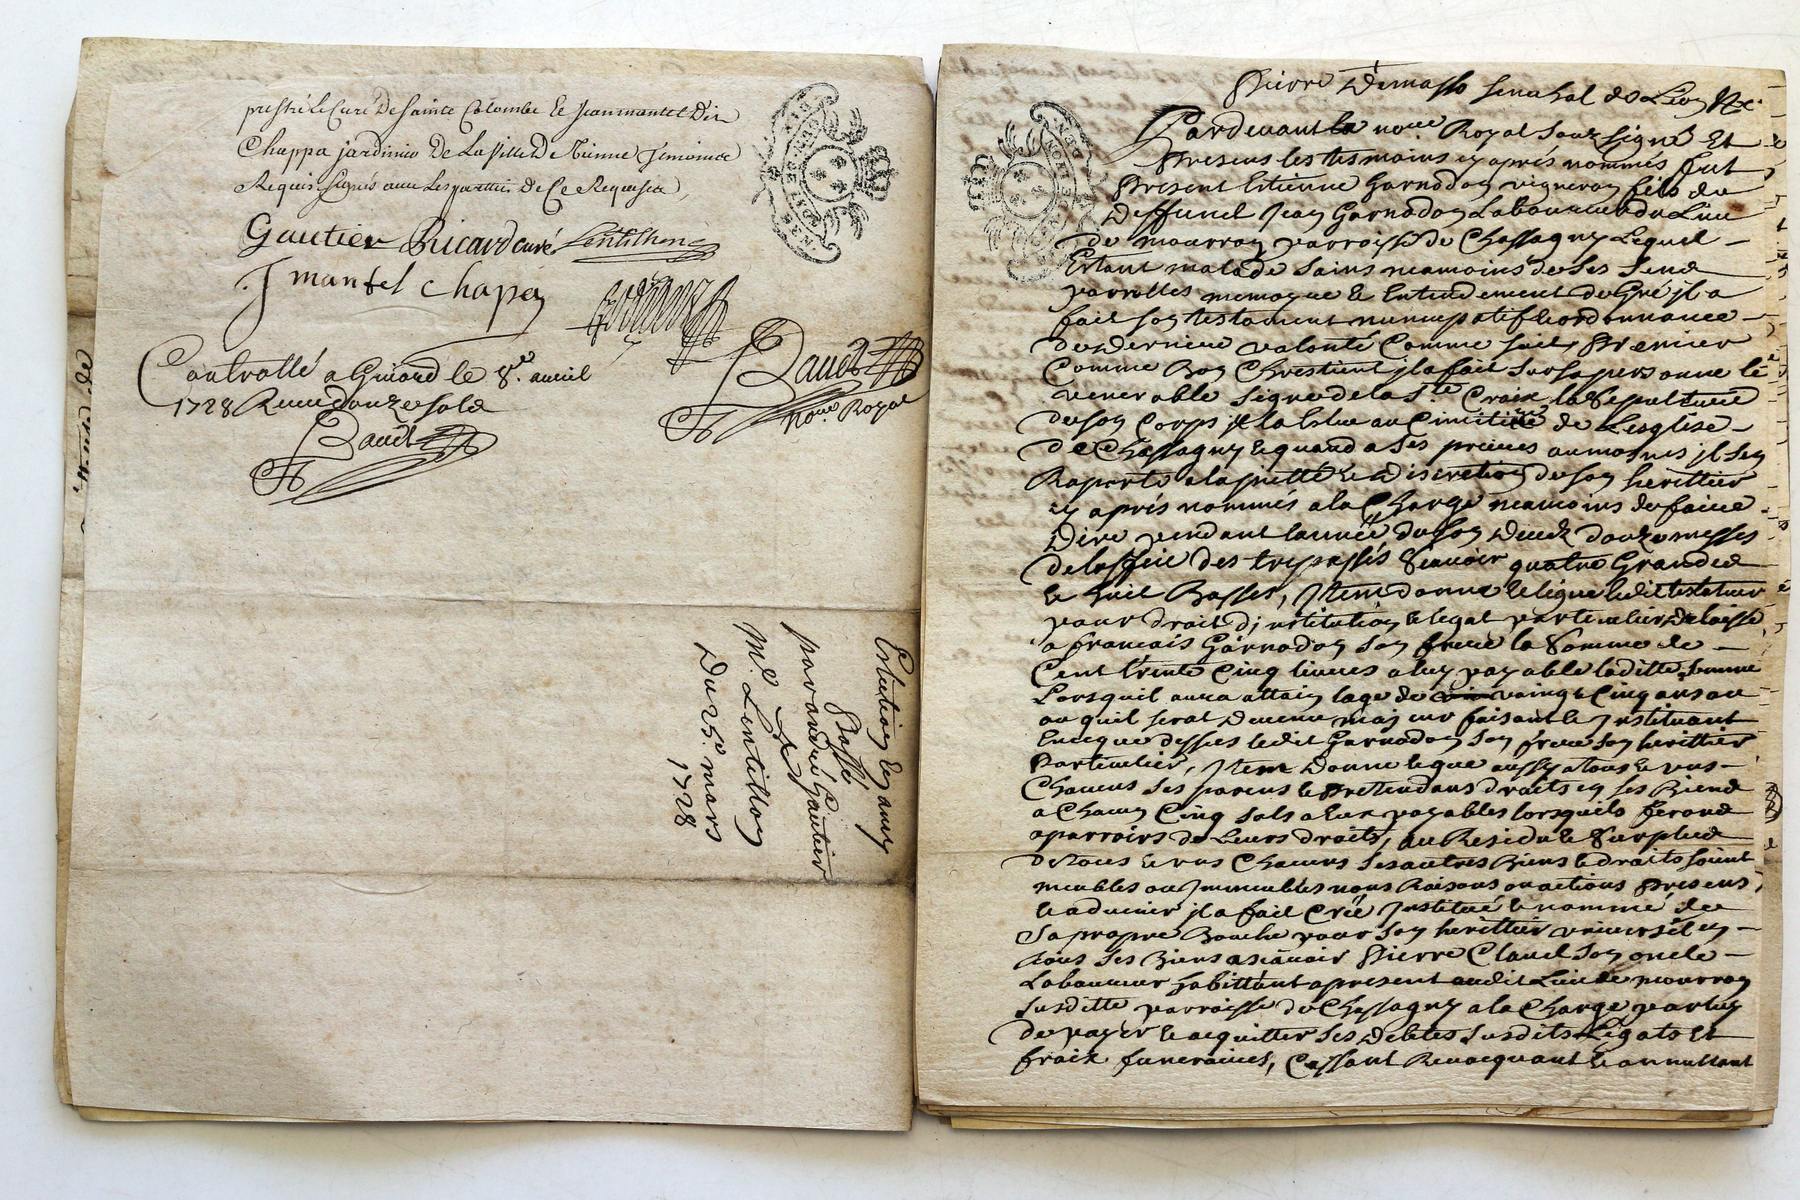 prestre et Curé de Sainte Colombe et Jean mantel dit
Chappa jardinier de la ville de Vienne temoins
Requis signés avec les parties de Ce Requises
Gautier Ricard curé Lentillon
J mantel chapa
Baudt
not.re Royal
Controllé a Givord le 8.e avril
1728 Receu douze sols
Baudt
passé
par andré Gautier
A
M.e Lentillon
Du 25.e mars
1728
Pierre Demasso senechal de Lion &c
Pardevant le no.re Royal soussigné Et
Presens les tesmoins cy aprés nommés fut
Present Etienne Garnodon vigneron fils de
Deffunct Jean Garnodon Laboureur du Lieu
de mourron parroisse de Chassagny Lequel
Estant malade sains neamoins de ses sens
parolles memoyre et Entendement de Gré il a
fait son testament nuncupatif et ordonnance
de derniere volonté Comme suit, Premier
Comme Bon Chrestient il a fait sur sa personne le
venerable signe de la S.te Croix la Sepulture
de son Corps il la Elue au Cimitiere de Lesglise
de Chassagny et quand a ses prieres aumosnes il sen
Raporte a la pietté et Discretion de son heritier
cy aprés nommés a la Charge neamoins de faire
Dire pendant lannée de son Deceds douze messes
de loffice des trepassés scavoir quatre Grandes
et huit Basses, Item donne et legue ledit testateur
pour droit dinstitution et legat particulier Delaisse
a francois Garnodon son frere la Somme de
Cent trente Cinq livres a luy payable laditte somme
Lorsquil aura attain lage de vaingt Cinq ans ou
ou quil serat Devenu majeur faisant et Instituant
en ce que dessus ledit Garnodon son frere son heritier
Particulier, Item Donne et legue aussy a tous et uns
Chacuns ses parens et Pretendans droits en ses Biens
a Chacun Cinq sols a Eux payables lorsquils feront
aparroirs de Leurs droits, au Residu et Surplus
de tous et uns Chacuns ses autres Biens et droits soient
meubles ou Immeubles noms Raisons ou actions Presens
et advenir il a fait Créé Institué et nommé de
Sa propre Bouche pour son heritier universel en
tous ses Biens ascavoir Pierre Clavel son oncle
Laboureur habittant a present audit Lieu de mourron
susditte parroisse de Chassagny a la Charge par luy
de payer et acquitter ses Debtes susdits Legats Et
fraix funeraires, Cassant Revocquant et annullant